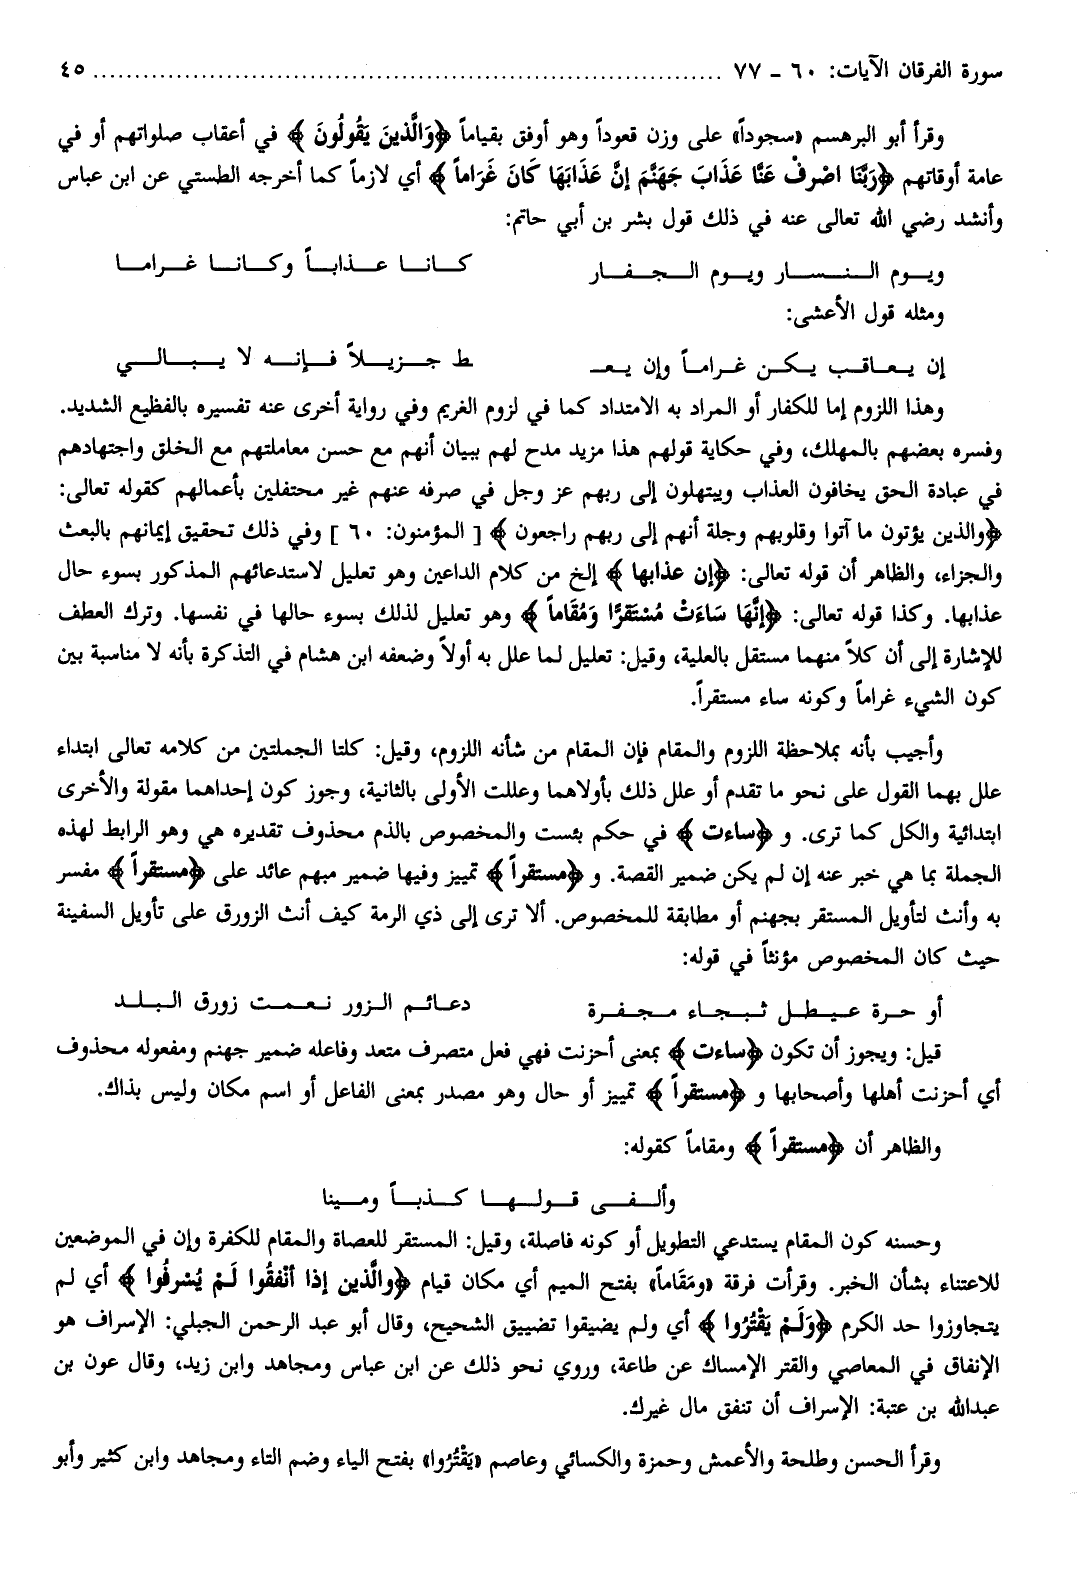 سورة الفرقان الآيات: ٦٠ ـ ٧٧ ........................................................................... ٤٥
وقرأ أبو البرهسم «سجوداً» على وزن قعوداً وهو أوفق بقياماً ﴿وَالَّذينَ يَقُولُونَ﴾ في أعقاب صلواتهم أو في
عامة أوقاتهم ﴿رَبَّنَا اصْرِفْ عَنَّا عَذَابَ جَهَنَّمَ إنَّ عَذَابَهَا كَانَ غَرَاماً﴾ أي لازماً كما أخرجه الطستي عن ابن عباس
وأنشد رضي الله تعالى عنه في ذلك قول بشر بن أبي حاتم:
ويوم النسار ويوم الجفار كانا عذاباً وكانا غراما
ومثله قول الأعشى:
إن يعاقب يكن غراماً وإن يعـ ط جزيلاً فإنه لا يبالي
وهذا اللزوم إما للكفار أو المراد به الامتداد كما في لزوم الغريم وفي رواية أخرى عنه تفسيره بالفظيع الشديد.
وفسره بعضهم بالمهلك، وفي حكاية قولهم هذا مزيد مدح لهم ببيان أنهم مع حسن معاملتهم مع الخلق واجتهادهم
في عبادة الحق يخافون العذاب ويبتهلون إلى ربهم عز وجل في صرفه عنهم غير محتفلين بأعمالهم كقوله تعالى:
﴿والذين يؤتون ما آتوا وقلوبهم وجلة أنهم إلى ربهم راجعون﴾ [ المؤمنون: ٦٠ ] وفي ذلك تحقيق إيمانهم بالبعث
والجزاء، والظاهر أن قوله تعالى: ﴿إن عذابها﴾ إلخ من كلام الداعين وهو تعليل لاستدعائهم المذكور بسوء حال
عذابها. وكذا قوله تعالى: ﴿إنَّهَا سَاءَتْ مُسْتَقَرًّا وَمُقَاماً﴾ وهو تعليل لذلك بسوء حالها في نفسها. وترك العطف
للإشارة إلى أن كلاً منهما مستقل بالعلية، وقيل: تعليل لما علل به أولاً وضعفه ابن هشام في التذكرة بأنه لا مناسبة بين
كون الشيء غراماً وكونه ساء مستقراً.
وأجيب بأنه بملاحظة اللزوم والمقام فإن المقام من شأنه اللزوم، وقيل: كلتا الجملتين من كلامه تعالى ابتداء
علل بهما القول على نحو ما تقدم أو علل ذلك بأولاهما وعللت الأولى بالثانية، وجوز كون إحداهما مقولة والأخرى
ابتدائية والكل كما ترى. و ﴿ساءت﴾ في حكم بئست والمخصوص بالذم محذوف تقديره هي وهو الرابط لهذه
الجملة بما هي خبر عنه إن لم يكن ضمير القصة. و ﴿مستقراً﴾ تمييز وفيها ضمير مبهم عائد على ﴿مستقراً﴾ مفسر
به وأنث لتأويل المستقر بجهنم أو مطابقة للمخصوص. ألا ترى إلى ذي الرمة كيف أنث الزورق على تأويل السفينة
حيث كان المخصوص مؤنثاً في قوله:
أو حرة عيطل ثبجاء مجفرة دعائم الزور نعمت زورق البلد
قيل: ويجوز أن تكون ﴿ساءت﴾ بمعنى أحزنت فهي فعل متصرف متعد وفاعله ضمير جهنم ومفعوله محذوف
أي أحزنت أهلها وأصحابها و ﴿مستقراً﴾ تمييز أو حال وهو مصدر بمعنى الفاعل أو اسم مكان وليس بذاك.
والظاهر أن ﴿مستقراً﴾ ومقاماً كقوله:
وألفى قولها كذباً ومينا
وحسنه كون المقام يستدعي التطويل أو كونه فاصلة، وقيل: المستقر للعصاة والمقام للكفرة وإن في الموضعين
للاعتناء بشأن الخبر. وقرأت فرقة «ومَقَاماً» بفتح الميم أي مكان قيام ﴿والَّذين إذا أنْفقُوا لَمْ يُسْرفُوا﴾ أي لم
يتجاوزوا حد الكرم ﴿وَلَمْ يَقْتُرُوا﴾ أي ولم يضيقوا تضييق الشحيح، وقال أبو عبد الرحمن الجبلي: الإسراف هو
الإنفاق في المعاصي والقتر الإمساك عن طاعة، وروي نحو ذلك عن ابن عباس ومجاهد وابن زيد، وقال عون بن
عبدالله بن عتبة: الإسراف أن تنفق مال غيرك.
وقرأ الحسن وطلحة والأعمش وحمزة والكسائي وعاصم «يَقْتُرُوا» بفتح الياء وضم التاء ومجاهد وابن كثير وأبو